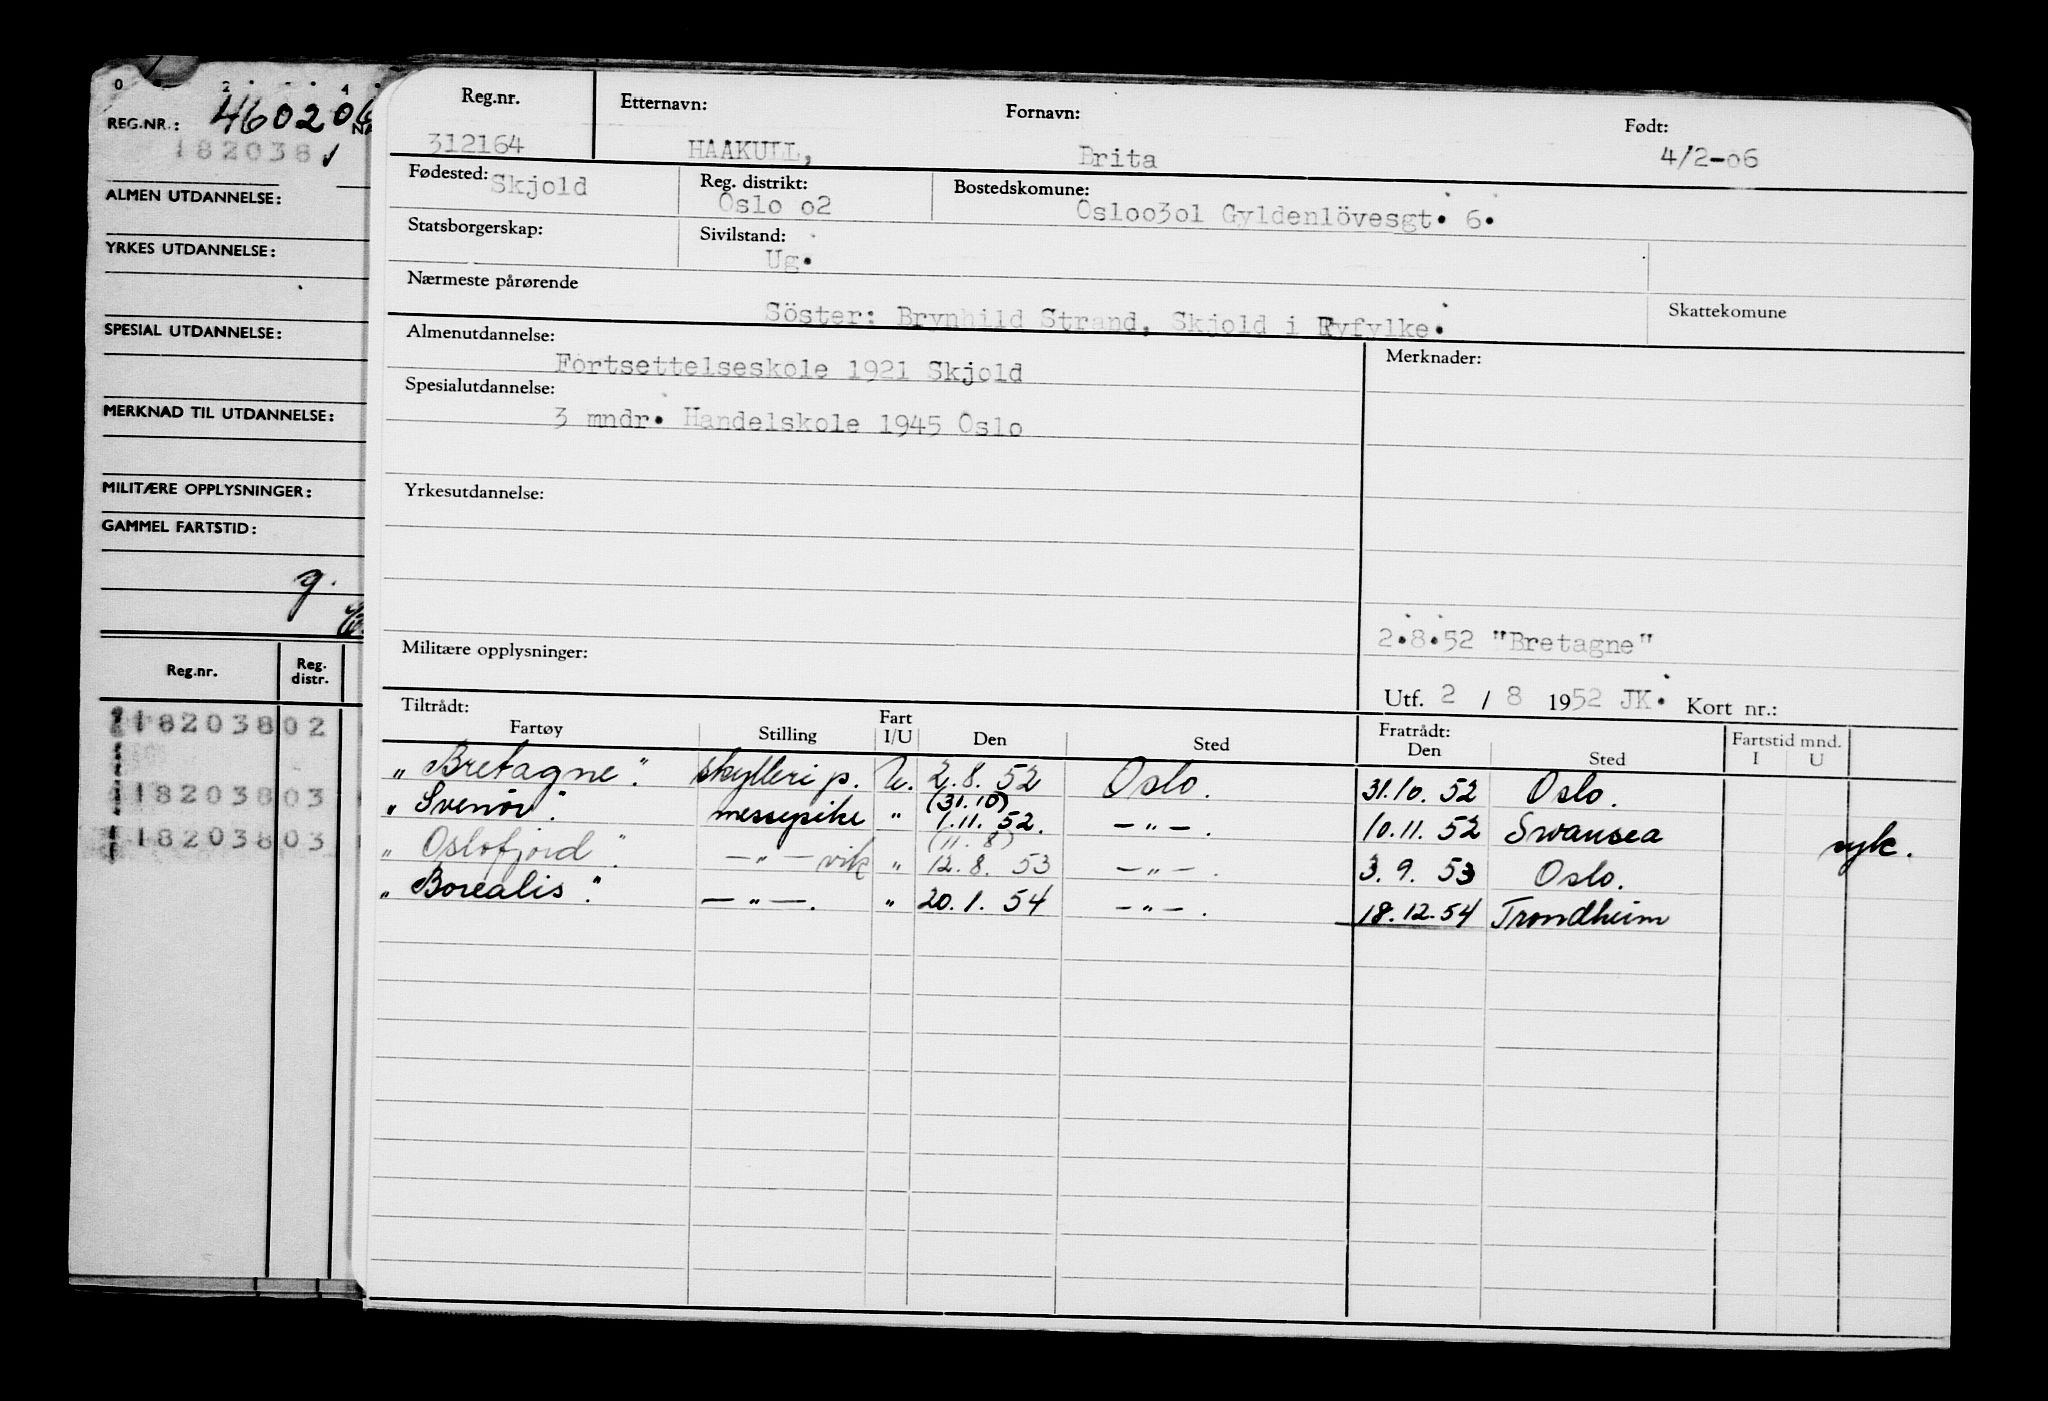 0 2 4
REG.NR.: 460206
182038
ALMEN UTDANNELSE:
YRKES UTDANNELSE:
SPESIAL UTDANNELSE:
MERKNAD TIL UTDANNELSE:
MILITÆRE OPPLYSNINGER:
GAMMEL FARTSTID:
g.
Reg.nr. Reg. distr.
182038 02
182038 03
182038 03
Reg.nr. Etternavn: Fornavn: Født:
312164 HAAKULL, Brita 4/2-06
Fødested: Skjold Reg. distrikt: Oslo o2 Bostedskomune: Osloo3o1 Gyldenlövesgt. 6.
Statsborgerskap: Sivilstand: Ug.
Nærmeste pårørende Skattekomune
Söster: Brynhild Strand, Skjold i Ryfylke.
Almenutdannelse: Merknader:
Fortsettelseskole 1921 Skjold
Spesialutdannelse:
3 mndr. Handelskole 1945 Oslo
Yrkesutdannelse:
2.8.52 "Bretagne"
Militære opplysninger:
Utf. 2 / 8 1952 JK. Kort nr.:
Tiltrådt: Fratrådt: Fartstid mnd.
Fartøy Stilling Fart I/U Den Sted Den Sted I U
„Bretagne". skylleri p. U. 2.8.52 Oslo. 31.10.52 Oslo.
(31.10)
„Svenör". messepike " 1.11.52. —"—. 10.11.52 Swansea syk.
(11.8)
„Oslofjord". —"— vik " 12.8.53 —"—. 3.9.53 Oslo.
„Borealis". —"—. " 20.1.54 —"—. 18.12.54 Trondheim